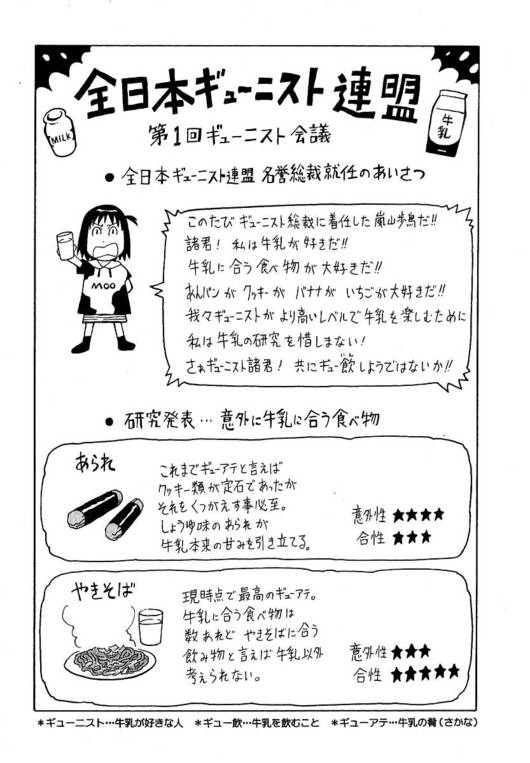 全日本ギューニスト連盟
MILK
牛乳
第1回ギューニスト会議
● 全日本ギューニスト連盟 名誉総裁就任のあいさつ
MOO
このたび ギューニスト総裁に着任した嵐山歩鳥だ!!
諸君! 私は牛乳が好きだ!!
牛乳に合う食べ物が大好きだ!!
あんパンが クッキーが バナナが いちごが大好きだ!!
我々ギューニストが より高いレベルで牛乳を楽しむために
私は牛乳の研究を惜しまない!
さぁギューニスト諸君! 共にギュー飲しようではないか!!
いん
● 研究発表… 意外に牛乳に合う食べ物
あられ
これまでギューアテと言えば
クッキー類が定石であったが
それをくつがえす事必至。
しょうゆ味の あられ が
牛乳本来の甘みを引き立てる。
意外性 ★★★★
合性 ★★★
やきそば
現時点で最高のギューアテ。
牛乳に合う食べ物は
数あれど やきそばに合う
飲み物と言えば牛乳以外
考えられない。
意外性 ★★★
合性 ★★★★★
*ギューニスト…牛乳が好きな人 *ギュー飲…牛乳を飲むこと *ギューアテ…牛乳の肴(さかな)